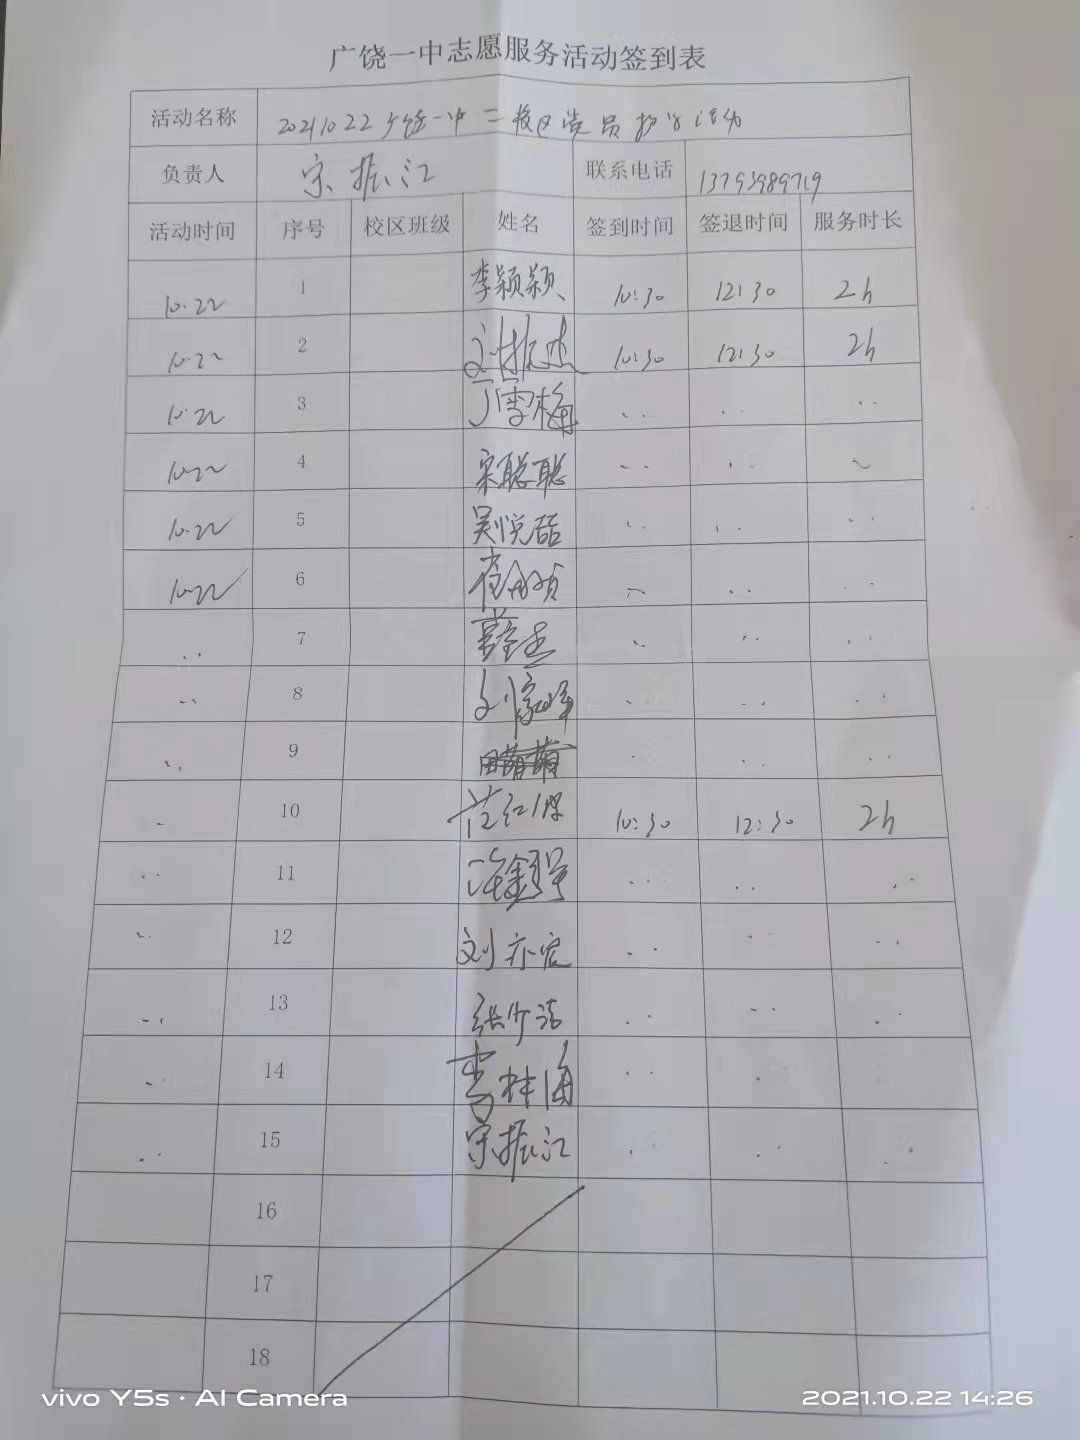 广饶一中志愿服务活动签到表
活动名称 20211022广饶一中二校区党员护学活动
负责人 宗振江 联系电话 13793989719
活动时间 序号 校区班级 姓名 签到时间 签退时间 服务时长
10.22 1 李颖颖 10:30 12:30 2h
10.22 2 刘振杰 10:30 12:30 2h
10.22 3 丁雪梅 〃 〃 〃
10.22 4 宋聪聪 〃 〃 〃
10.22 5 吴悦喆 〃 〃 〃
10.22 6 〃 〃 〃
〃 7 〃 〃 〃
〃 8 刘家峰 〃 〃 〃
〃 9 〃 〃 〃
〃 10 范红保 10:30 12:30 2h
〃 11 〃 〃 〃
〃 12 刘亦宏 〃 〃 〃
〃 13 张少洁 〃 〃 〃
〃 14 李林海 〃 〃
〃 15 宗振江 〃 〃 〃
16
17
18
vivo Y5s · AI Camera 2021.10.22 14:26